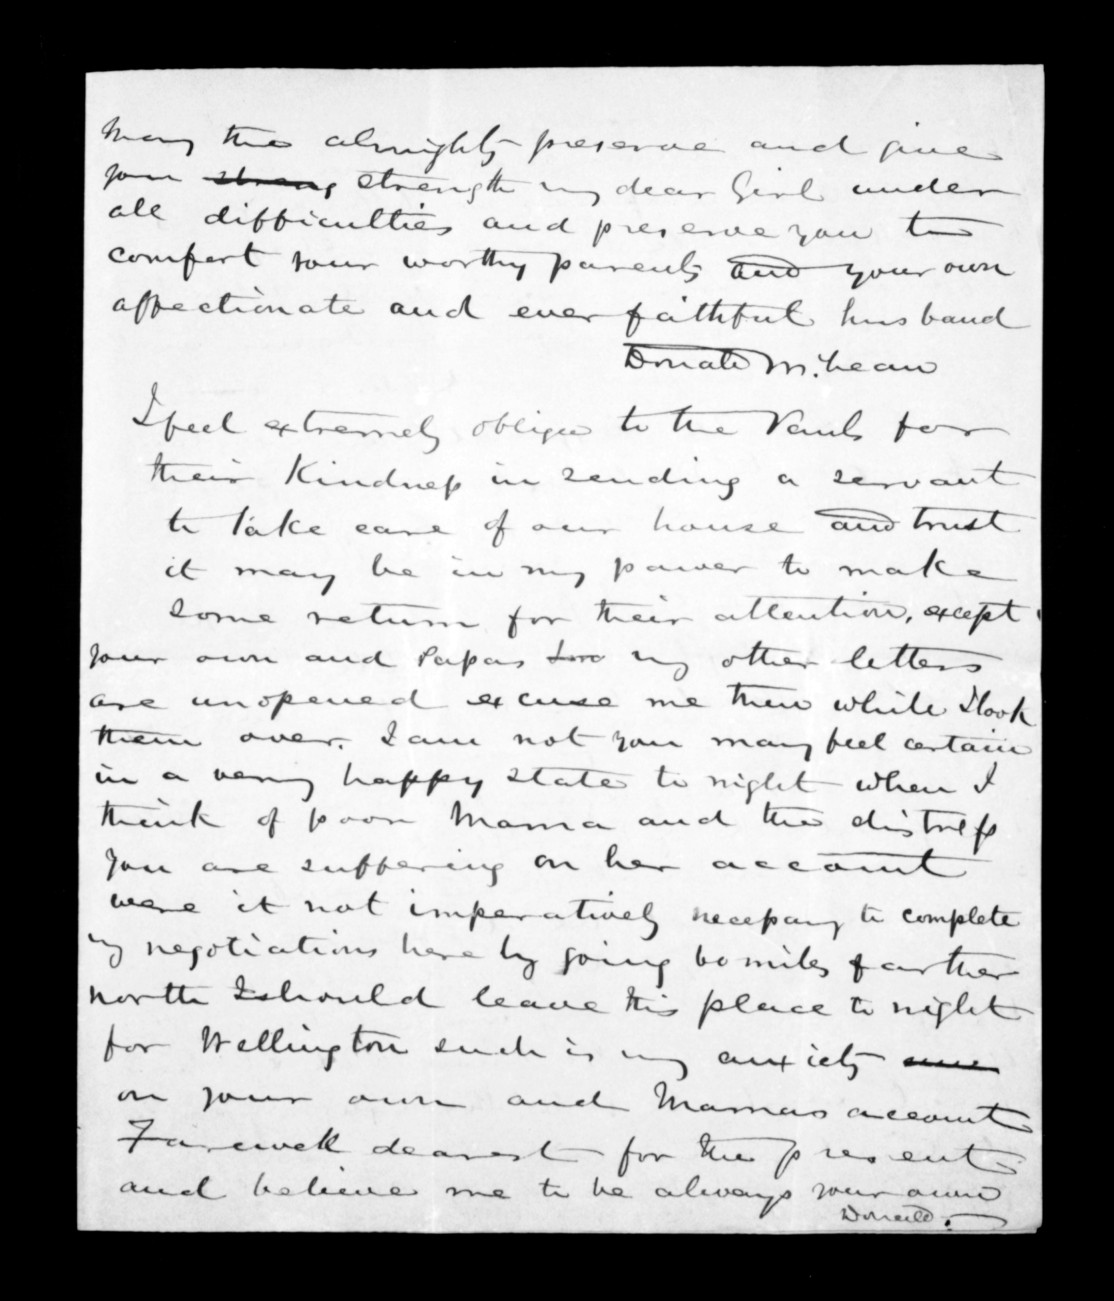 May the almighty preserve and give
you streng strength my dear Girl under
all difficulties and preserve you to
comfort your worthy parents and your own
affectionate and ever faithful husband
Donald McLean
I feel extremely obliged to the for
their Kindness in sending a servant
to take care of our house and trust
it may be in my power to make
some return for their attention, except
your own and Papas two my other letters
are unopened excuse me then while I look
them over. I am not you may feel certain
in a very happy state to night when I
think of poor Mama and the distress
you are suffering on her account
were it not imperatively necessary to complete
my negotiations here by going 60 miles farther
north I should leave this place to night
for Wellington such is my anxiety
on your own and Mamas account
Farewell dearest for the present
and believe me to be always your own
Donald.